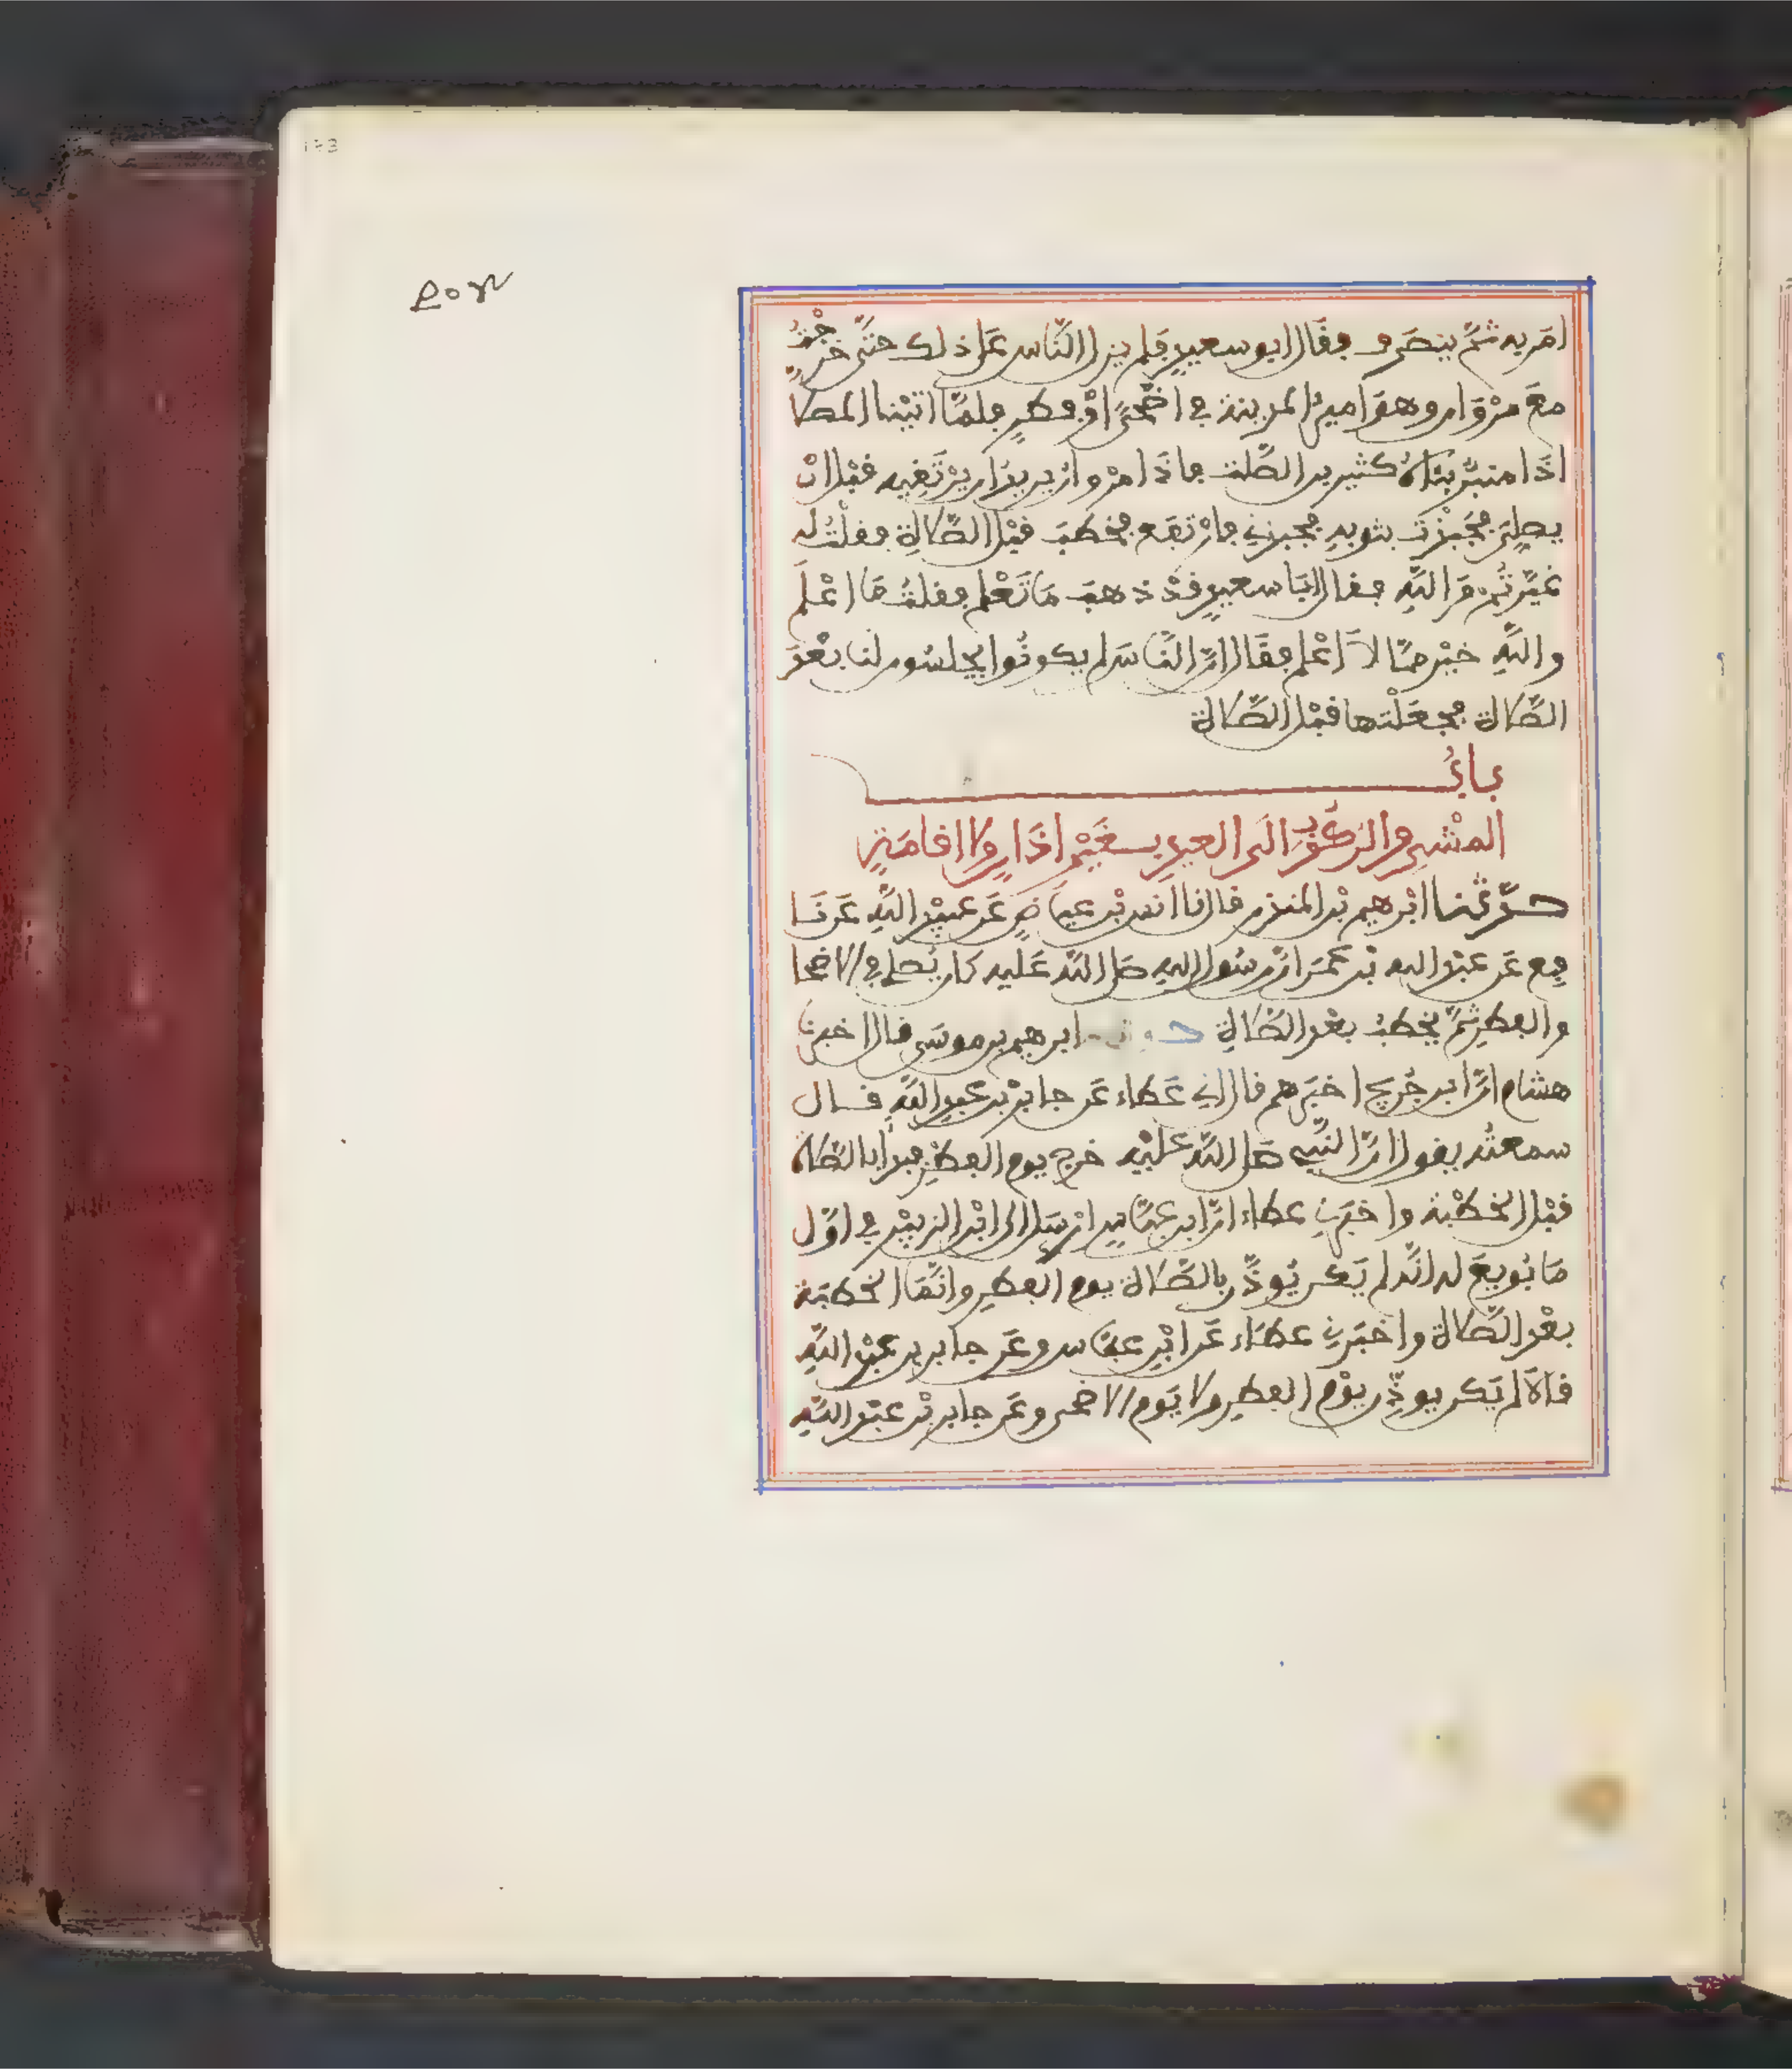 173
امَر به ثمَّ ينصَرف فقَال ابو سعيدٍ فلم يزل النَّاس عَلى ذلك حتَّى خرجْتُ
معَ مرْوَان وهوَ اميرُ المدينة في اضْحًى اوْ فطرٍ فلمَّا اتيْنا المصلا
اذَا منبرٌ بنَاهُ كثير بن الصَّلت فاذَا مرْوانُ يريدُ ان يرْتَقيه قبْل انْ
يصلِّيَ فجَبذْتُ بثوبهِ فجبذني فارْتفَع فخطبَ قبْل الصَّلاةِ فقلْتُ له
غيَّرْتُم وَاللهِ فقال ابَا سعيدٍ قدْ ذهبَ مَا تَعْلم فقلتُ مَا اعْلَم
واللهِ خيْر ممَّا لاَ اعْلم فقَال انَّ النَّاسَ لم يكونُوا يجلسُون لنا بعْدَ
الصَّلاة فجعَلْتها قبْل الصَّلاة
بابُ
المشْي والرّكُوب الَى العيدِ بغَيْر اذَانٍ ولا اقامَةٍ
حدّثنا ابْرهيم بْن المنذر قال نا انس بْن عيَاضٍ عَن عبيْد اللهِ عَن نَا
فع عَن عبْد الله بْن عُمَر انَّ رسُول اللهِ صَلى اللهُ عَليه كان يُصلي في الاضحا
والفطرِ ثمَّ يخطبُ بعْد الصَّلاةِ حدثنا ابرهيم بن موسَى قال اخبرنا
هشام انَّ ابن جُريج اخبَرهم قال اني عَطاء عَن جابرْ بْن عبدِ اللهِ قال
سمعتُه يقول انَّ النَّبي صَلى اللهُ عليْه خرج يوم الفطْرِ فبدأ بالصَّلاة
قبْل الخطْبة واخبَرني عطاء انَّ ابن عبَّاسٍ ارْسَل الى ابْن الزبيْر في اوَّل
مَا بُويعَ له انَّه لم يَكن يُوذَّن بالصَّلاة يوم الفطرِ وانَّمَا الخطبَة
بعْد الصَّلاة واخبَرني عطَاء عَن ابْن عبَّاس وعَن جابر بن عبْد اللهِ
قالاَ لم يَكن يوذَّن يوْم الفطرِ ولا يَوم الاضحى وعَن جابر بْن عبْد اللهِ